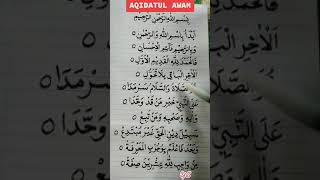 AQIDATUL AWAM
بِسْمِ اللهِ الرَّحْمٰنِ الرَّحِيْمِ
أَبْدَأُ بِاسْمِ اللهِ وَالرَّحْمٰنِ
وَبِالرَّحِيْمِ دَائِمِ الْإِحْسَانِ
فَالْحَمْدُ لِلهِ الْقَدِيْمِ الْأَوَّلِ
اَلْآخِرِ الْبَاقِيْ بِلَا تَحَوُّلِ
الصَّلَاةُ وَالسَّلَامُ سَرْمَدَا
عَلَى النَّبِيِّ خَيْرِ مَنْ قَدْ وَحَّدَا
وَآلِهِ وَصَحْبِهِ وَمَنْ تَبِعْ
سَبِيْلَ دِيْنِ الْحَقِّ غَيْرَ مُبْتَدِعْ
وَبَعْدُ فَاعْلَمْ بِوُجُوْبِ الْمَعْرِفَةْ
مِنْ وَاجِبٍ لِلهِ عِشْرِيْنَ صِفَةْ